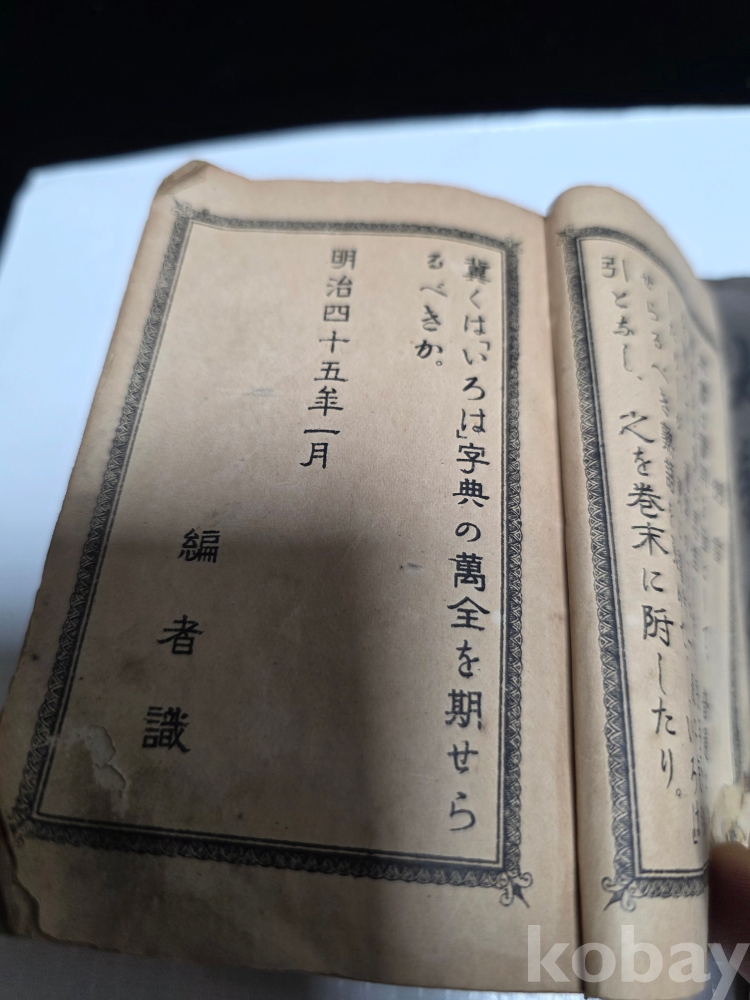 せらるべき
引となし、之を巻末に附したり。
冀くは「いろは」字典の萬全を期せら
るべきか。
明治四十五年一月
編者識
kobay